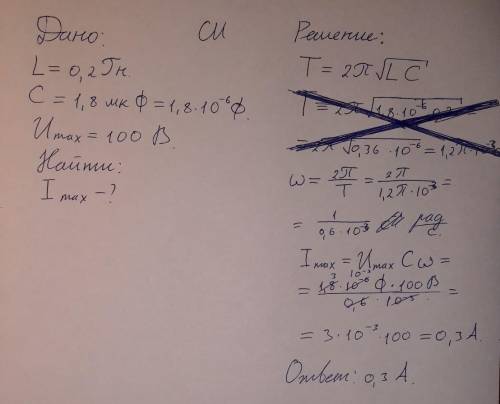 Дано:
СИ
L = 0,2 Гн.
C = 1,8 мкФ = 1,8·10⁻⁶ Ф.
Umax = 100 В.
Найти:
I max - ?
Решение:
T = 2π√LC
T = 2π√1,8·10⁻⁶·0,2 =
= 2π√0,36·10⁻⁶ = 1,2π·10⁻³
ω = 2π/T = 2π/1,2π·10⁻³ =
= 1/0,6·10⁻³ рад/с.
I max = Umax Cω =
= 1,8·10⁻⁶ Ф·100 В/0,6·10⁻³ =
3 10⁻³
= 3·10⁻³·100 = 0,3 А.
Ответ: 0,3 А.